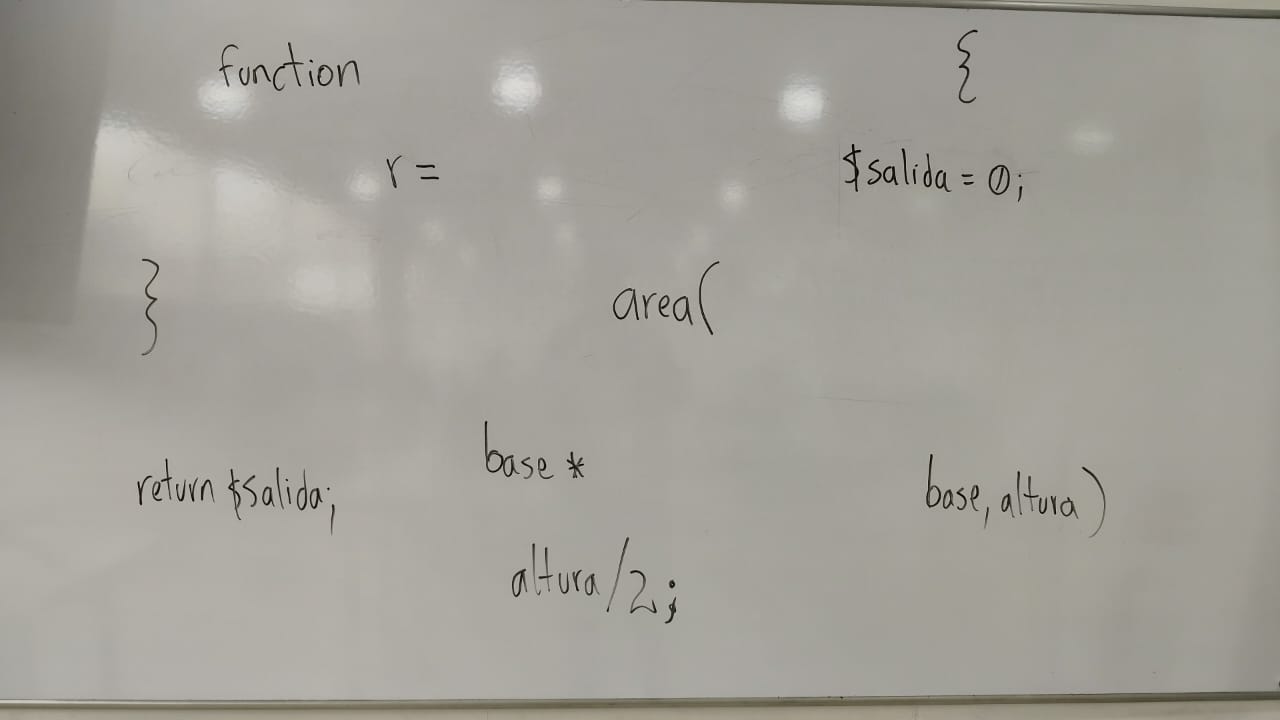 function
{
r =
$salida = 0;
}
area(
base *
return $salida;
base, altura)
altura/2;